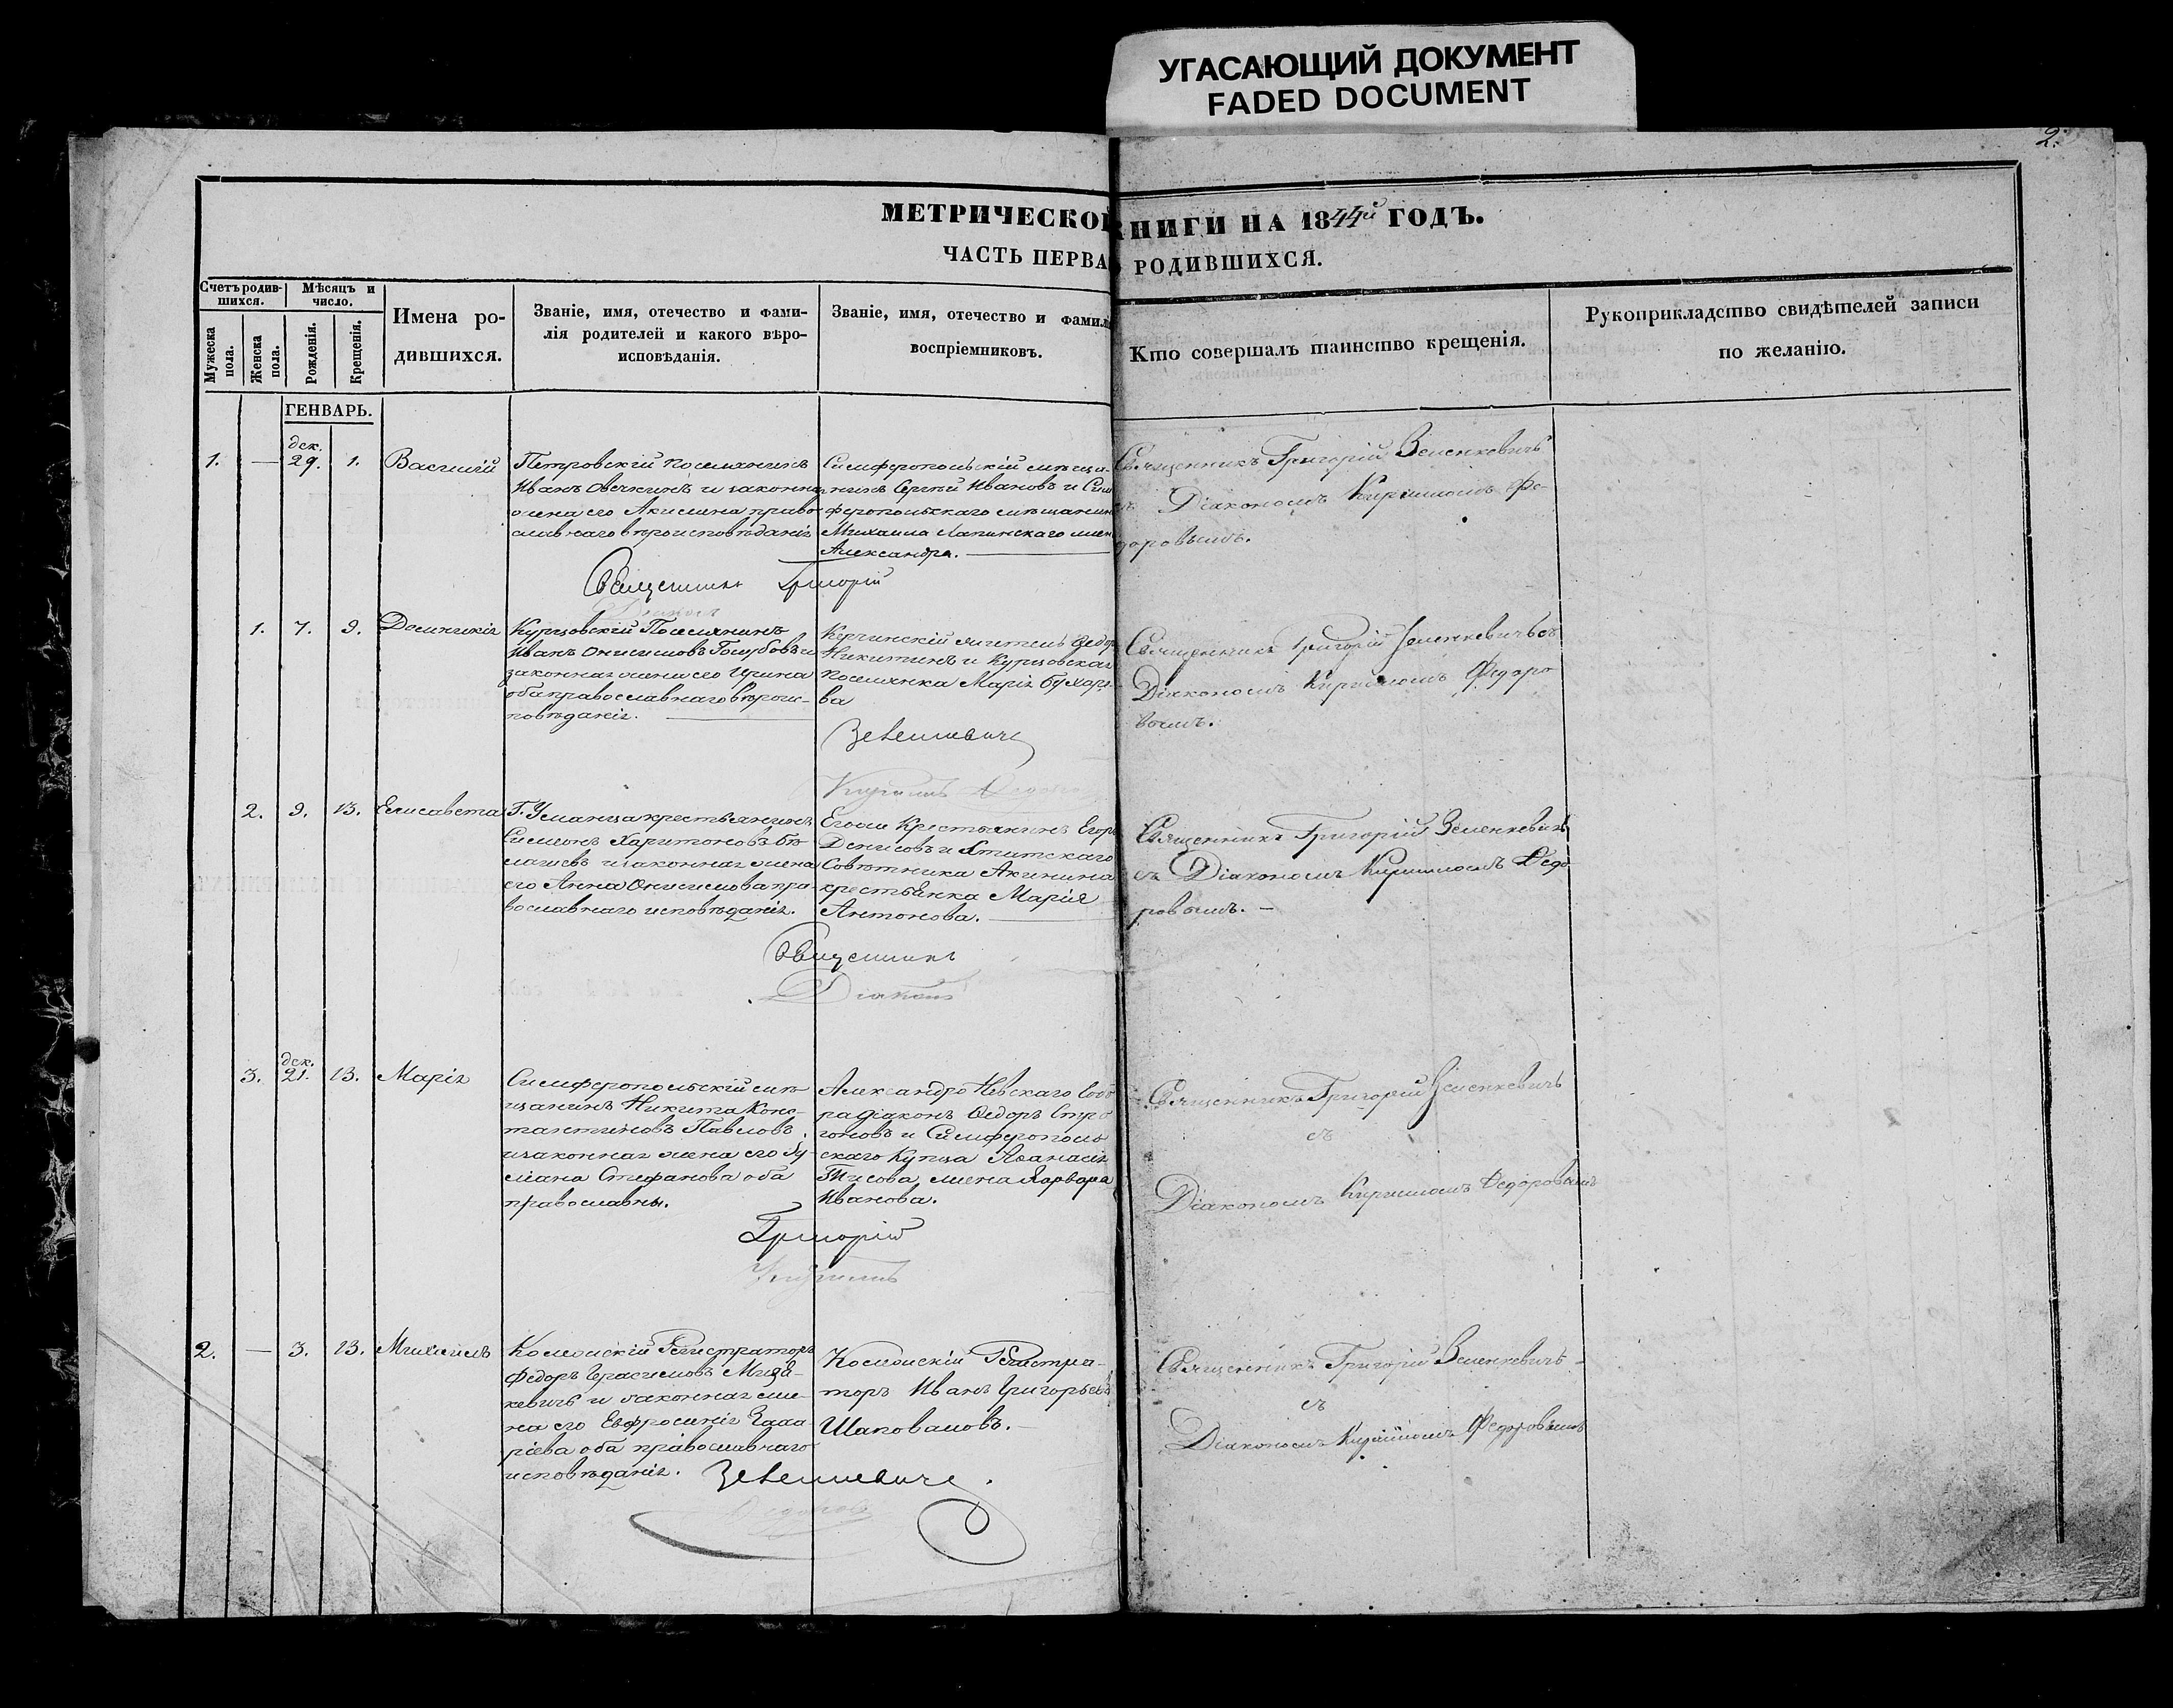 УГАСАЮЩИЙ ДОКУМЕНТ
FADED DOCUMENT
2.
МЕТРИЧЕСКОЙ КНИГИ НА 1844й ГОДЪ.
ЧАСТЬ ПЕРВА РОДИВШИХСЯ.
Счетъ родив-
шихся.
Мѣсяцъ и
число.
Мужеска
пола.
Женска
пола.
Рожденія.
Крещенія.
Имена ро-
дившихся.
Званіе, имя, отечество и фами-
лія родителей и какого вѣро-
исповѣданія.
Званіе, имя, отечество и фамилі
воспріемниковъ.
Кто совершалъ таинство крещенія.
Рукоприкладство свидѣтелей записи
по желанію.
ГЕНВАРЬ.
1.
—
дек.
29.
1.
Василій
Петровскій поселянинъ
Иванъ Овечкинъ и законная
жена его Акилина право-
славнаго вѣроисповѣданія
Симферопольскій мѣща-
нинъ Сергѣй Ивановъ и Сим
феропольскаго мѣщанина
Михаила Лапинскаго жена
Александра.
Священникъ Григорій Зеленкевичъ
съ Діакономъ Кирилломъ Фе-
доровымъ.
Священникъ Григорій
Діаконъ
1.
7.
9.
Домникія
Курцовскій Поселянинъ
Иванъ Онисимовъ Голубовъ и
законная жена его Ирина
оба православнаго вѣроис-
повѣданія.
Керчинскій житель Федоръ
Никитинъ и Курцовская
поселянка Марія Бухаро-
ва
Священникъ Григорій Зеленкевичъ съ
Діакономъ Кирилломъ Федоро
вымъ.
Зеленкевичъ
Кириллъ Федоро
2.
9.
13.
Елисавета
Г. Усманца крестьянинъ
Симеонъ Харитоновъ Бѣ-
лашевъ и законная жена
его Анна Онисимова пра-
вославнаго исповѣданія.
Егоже Крестьянинъ Егоръ
Денисовъ и Статскаго
Совѣтника Акинина
крестьянка Марія
Антонова.
Священникъ Григорій Зеленкевичъ
съ Діакономъ Кирилломъ Федо
ровымъ. —
Священникъ
Діаконъ
3.
дек.
21.
13.
Марія
Симферопольскій мѣ-
щанинъ Никита Конс-
тантиновъ Павловъ,
и законная жена его Іу-
ліана Стефанова оба
православны.
Александро Невскаго Собо
ра діаконъ Федоръ Стро
гоновъ и Симферополь
скаго Купца Аѳанасія
жена Варвара
Иванова.
Священникъ Григорій Зеленкевичъ
съ
Діакономъ Кирилломъ Федоровымъ
Григорій
Кириллъ
2.
—
3.
13.
Михаилъ
Колежскій Регистраторъ
Федоръ Герасимовъ
кевичъ и законная же-
на его Евфросинія
ріева оба православнаго
исповѣданія.
Колежскій Регистра-
торъ Иванъ Григорьевъ
Шаповаловъ. —
Священникъ Григорій Зеленкевичъ
съ
Діакономъ Кирилломъ Федоровымъ
Зеленкевичъ.
Федоровъ